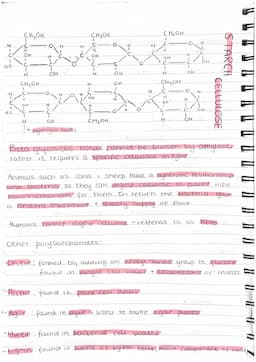 CH₂OH CH₂OH CH₂OH
STARCH
CELLULOSE
CH₂OH OH CH₂OH
OH CH₂OH OH
Beta glycosidic bonds cannot be broken by amylase
rather it requires a specific cellulose enzyme
Animals such as cows + sheep have a symbiotic relationship
with bacteria so they can digest cellulose in plants into
monosaccharides for them. In return the bacteria gain
a constant environment + steady supply of food.
Humans cannot digest cellulose - referred to as fibre
Other polysaccharides:
Chitin: formed by adding an acetyl amine group to glucose
found in fungal cell walls + exoskeletons of insects
Pectin: found in plant cell walls
Agar: found in algae + used to make agar plates
Murein: found in bacterial cell walls
Lignin: found in walls of xylem cells, main component of